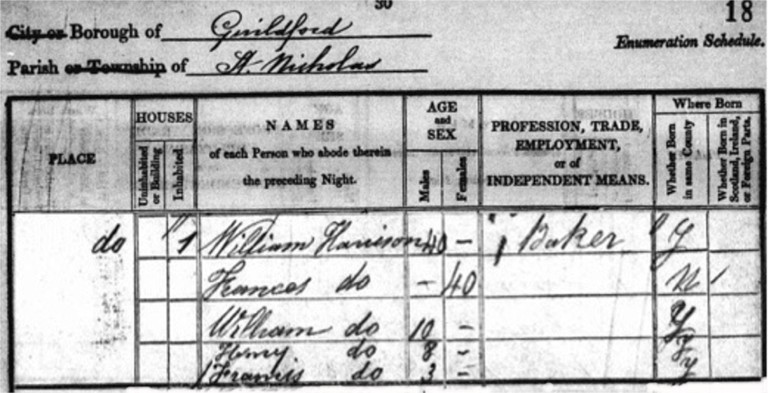 30
18
City or Borough of Guildford
Enumeration Schedule.
Parish or Township of St. Nicholas
PLACE
HOUSES
Uninhabited or Building
Inhabited
NAMES
of each Person who abode therein
the preceding Night.
AGE
and
SEX
Males
Females
PROFESSION, TRADE,
EMPLOYMENT,
or of
INDEPENDENT MEANS.
Where Born
Whether Born in same County
Whether Born in Scotland, Ireland, or Foreign Parts.
do 1 William Harrison 40 – Baker Y
Frances do – 40 N
William do 10 – Y
Henry do 8 – Y
Francis do 3 – Y